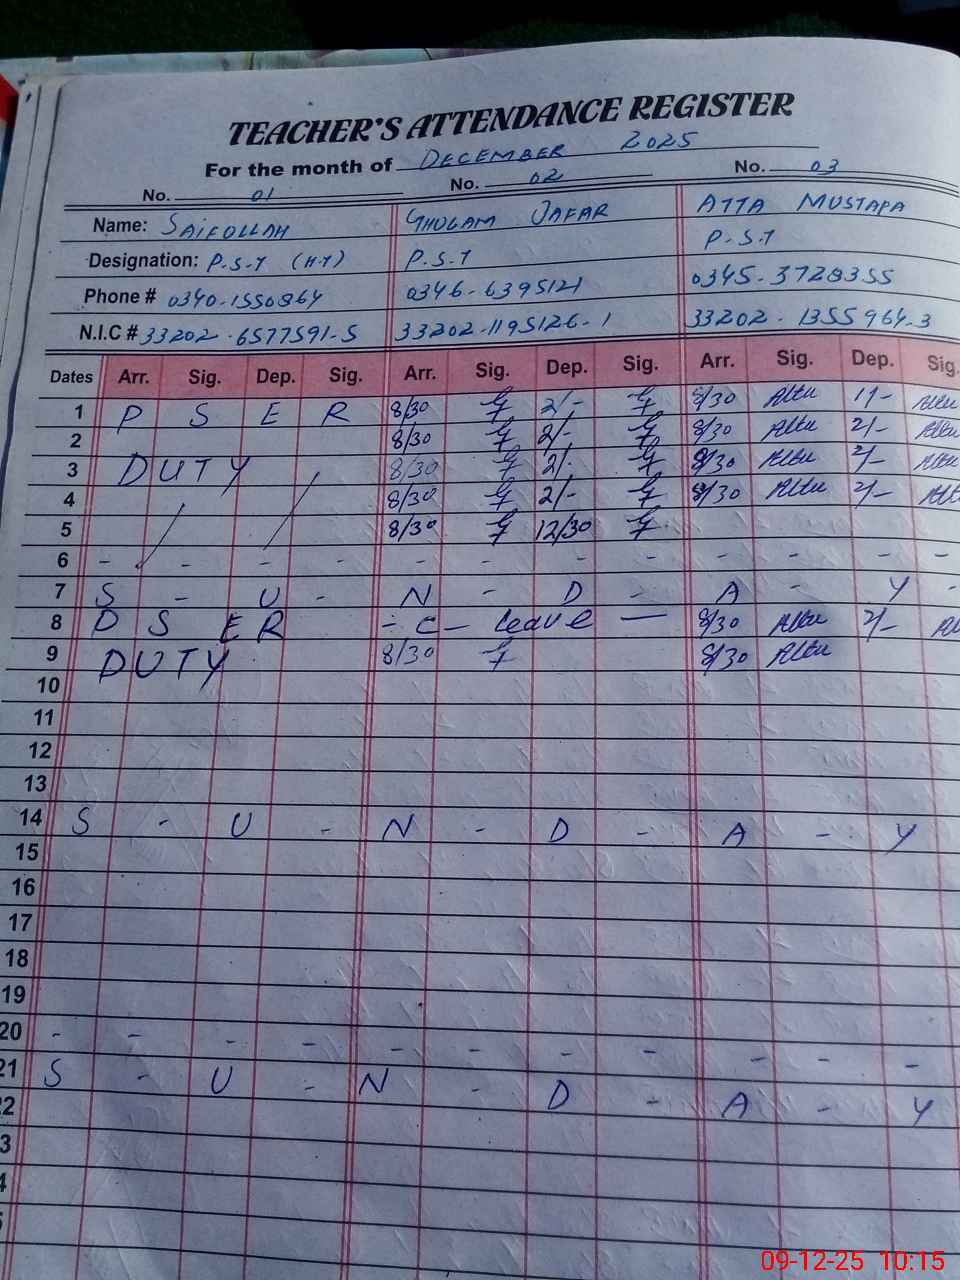 TEACHER'S ATTENDANCE REGISTER
For the month of DECEMBER 2025
No. 01 No. 02 No. 03
Name: SAIFOLLAH GHULAM JAFAR ATTA MUSTAFA
Designation: P.S.T (H.T) P.S.T P.S.T
Phone # 0340-1550864 0346-6395121 0345-3728355
N.I.C # 33202-6577591-5 33202-1195126-1 33202-1355964-3
Dates Arr. Sig. Dep. Sig. Arr. Sig. Dep. Sig. Arr. Sig. Dep. Sig.
1 P S E R 8/30 2/- 8/30 Attu 11- Attu
2 8/30 2/- 8/30 Attu 2/- Attu
3 DUTY 8/30 2/- 8/30 Attu 2/- Attu
4 8/30 2/- 8/30 Attu 2/- Att
5 8/30 12/30
6 - - - - - - - - - - - -
7 S - U - N - D - A - Y -
8 P S E R - C - leave - 8/30 Attu 2/- A
9 DUTY 8/30 8/30 Attu
10
11
12
13
14 S - U - N - D - A - Y
15
16
17
18
19
20 - - - - - - - - - - -
21 S - U - N - D - A - Y
2
3
4
5
09-12-25 10:15